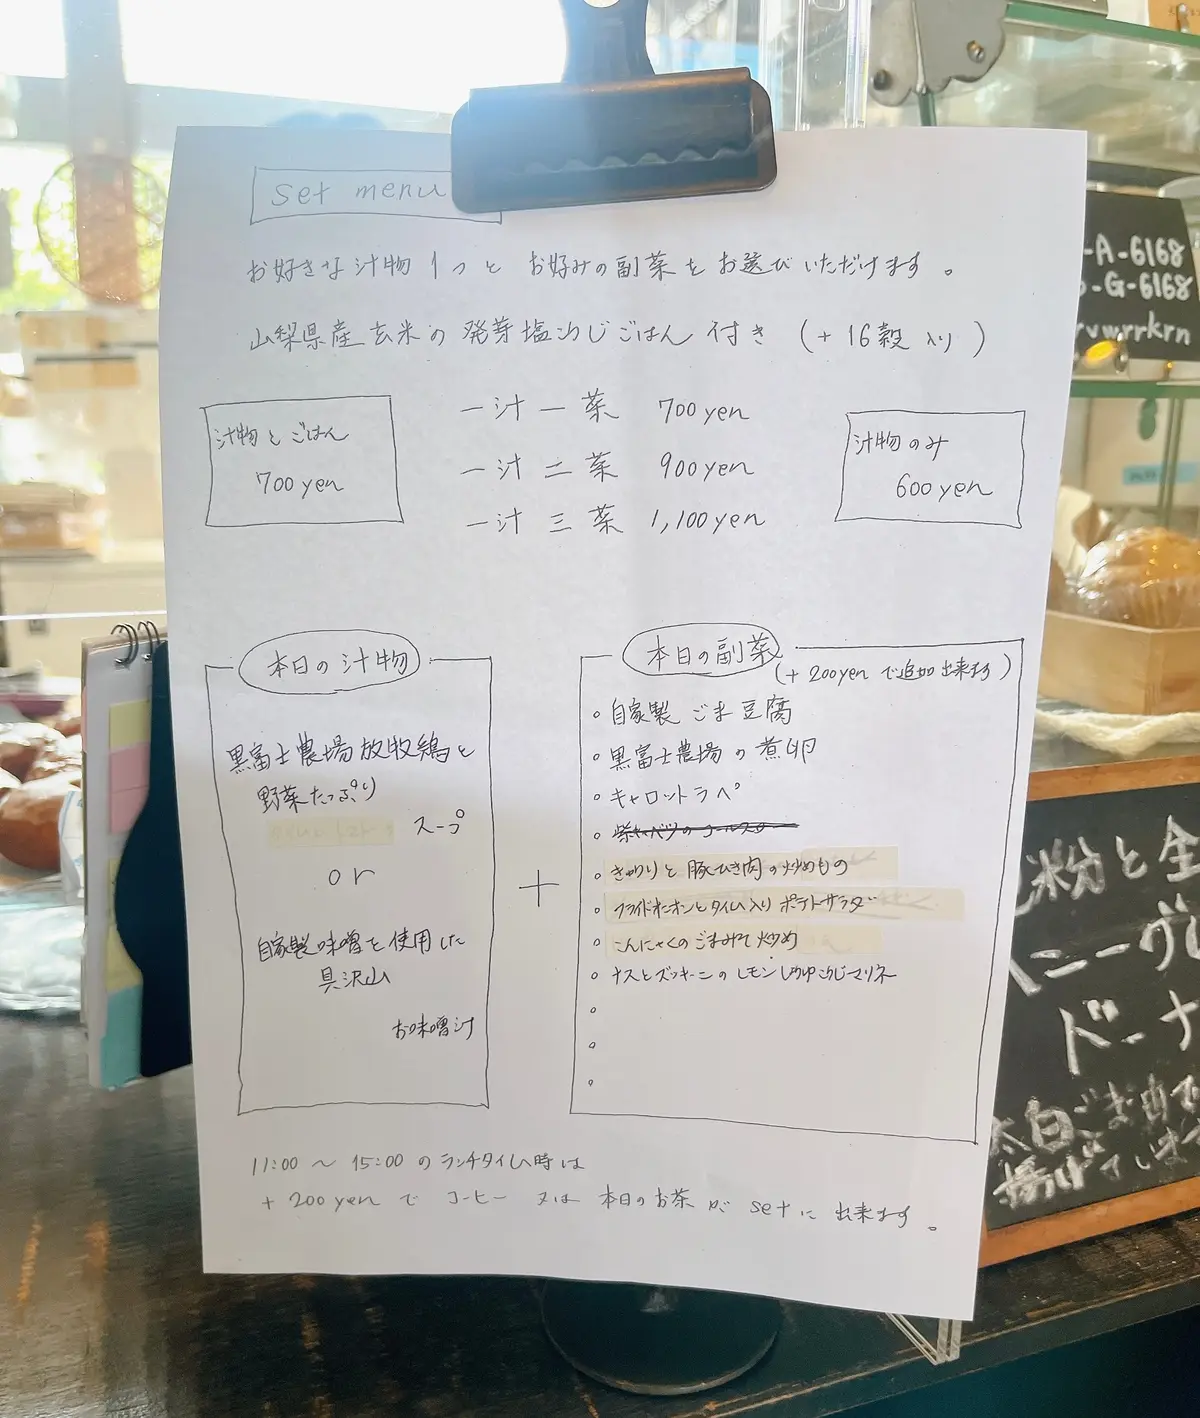 set menu
お好きな汁物1つと お好みの副菜をお選びいただけます。
山梨県産玄米の発芽塩こうじごはん付き (+16穀入り)
汁物とごはん
700yen
一汁一菜 700yen
一汁二菜 900yen
一汁三菜 1,100yen
汁物のみ
600yen
本日の汁物
黒富士農場放牧鶏と
野菜たっぷり
スープ
or
自家製味噌を使用した
具沢山
お味噌汁
+
本日の副菜
(+200yenで追加出来ます)
・自家製ごま豆腐
・黒富士農場の煮卵
・キャロットラペ
・紫キャベツのコールスロー
・きゅうりと豚ひき肉の炒めもの
・フライドオニオンとタイム入りポテトサラダ
・こんにゃくのごまみそ炒め
・ナスとズッキーニのレモンしょうゆこうじマリネ
11:00〜15:00のランチタイム時は
+200yenで コーヒー又は本日のお茶がsetに出来ます。
-A-6168
-G-6168
rvwrrkrn
粉と全
ドーナ
太白ごま油で
揚げています